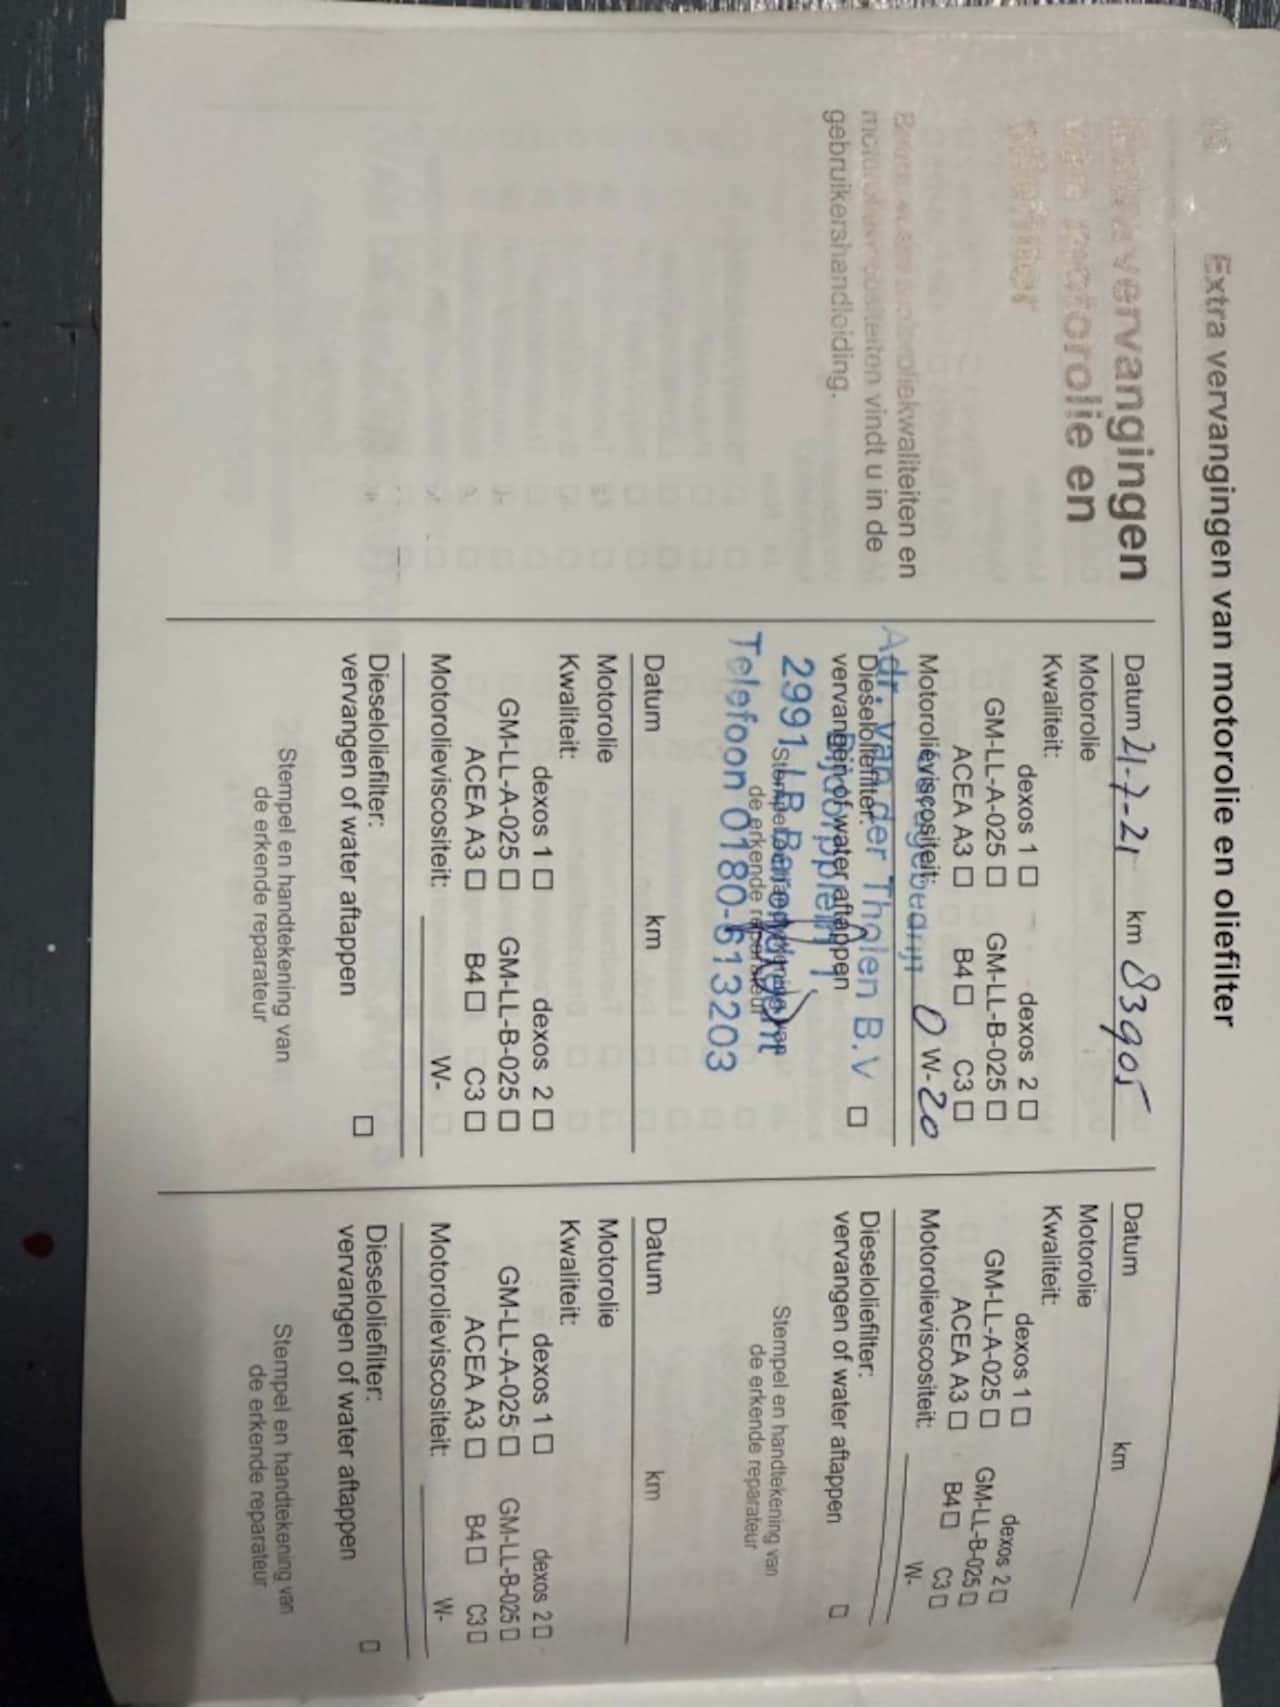 Extra vervangingen van motorolie en oliefilter
Extra vervangingen
van motorolie en
oliefilter
motorolieviscositeiten vindt u in de
gebruikershandleiding.
Datum 21-7-21 km 83905
Motorolie
Kwaliteit:
dexos 1 □ dexos 2 □
GM-LL-A-025 □ GM-LL-B-025 □
ACEA A3 □ B4 □ C3 □
Motorolieviscositeit: 0 W-20
Dieseloliefilter:
vervangen of water aftappen □
Stempel en handtekening van
de erkende reparateur
Adr. van der Tholen B.V
2991 LB Barendrecht
Telefoon 0180-613203
Datum km
Motorolie
Kwaliteit:
dexos 1 □ dexos 2 □
GM-LL-A-025 □ GM-LL-B-025 □
ACEA A3 □ B4 □ C3 □
Motorolieviscositeit: W-
Dieseloliefilter:
vervangen of water aftappen □
Stempel en handtekening van
de erkende reparateur
Datum km
Motorolie
Kwaliteit:
dexos 1 □ dexos 2 □
GM-LL-A-025 □ GM-LL-B-025 □
ACEA A3 □ B4 □ C3 □
Motorolieviscositeit: W-
Dieseloliefilter:
vervangen of water aftappen □
Stempel en handtekening van
de erkende reparateur
Datum km
Motorolie
Kwaliteit:
dexos 1 □ dexos 2 □
GM-LL-A-025 □ GM-LL-B-025 □
ACEA A3 □ B4 □ C3 □
Motorolieviscositeit: W-
Dieseloliefilter:
vervangen of water aftappen □
Stempel en handtekening van
de erkende reparateur